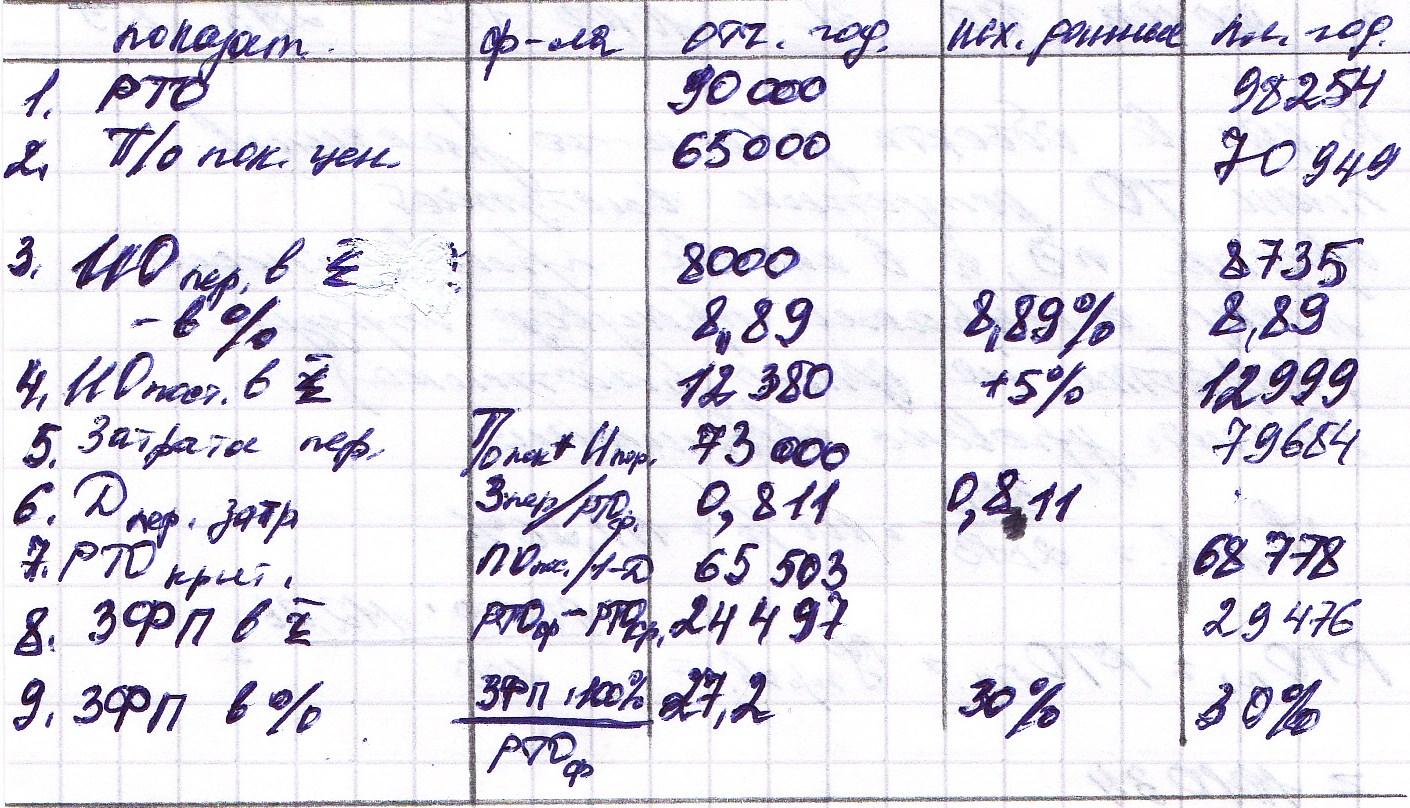 показат. ф-ла отч. год. исх. данные пл. год.
1. РТО 90 000 98254
2. Т/о пок. цен. 65000 70 949
3. ИО пер. в Σ 8000 8735
- в % 8,89 8,89% 8,89
4. ИО пост. в Σ 12 380 +5% 12999
5. Затраты пер. По пок + Ипер. 73 000 79684
6. Д пер. затр Зпер/РТОф. 0,811 0,811
7. РТО крит. ИОпос./1-Д 65 503 68 778
8. ЗФП в Σ РТОф-РТОкр. 24 497 29 476
9. ЗФП в % ЗФП·100% 27,2 30% 30%
РТОф